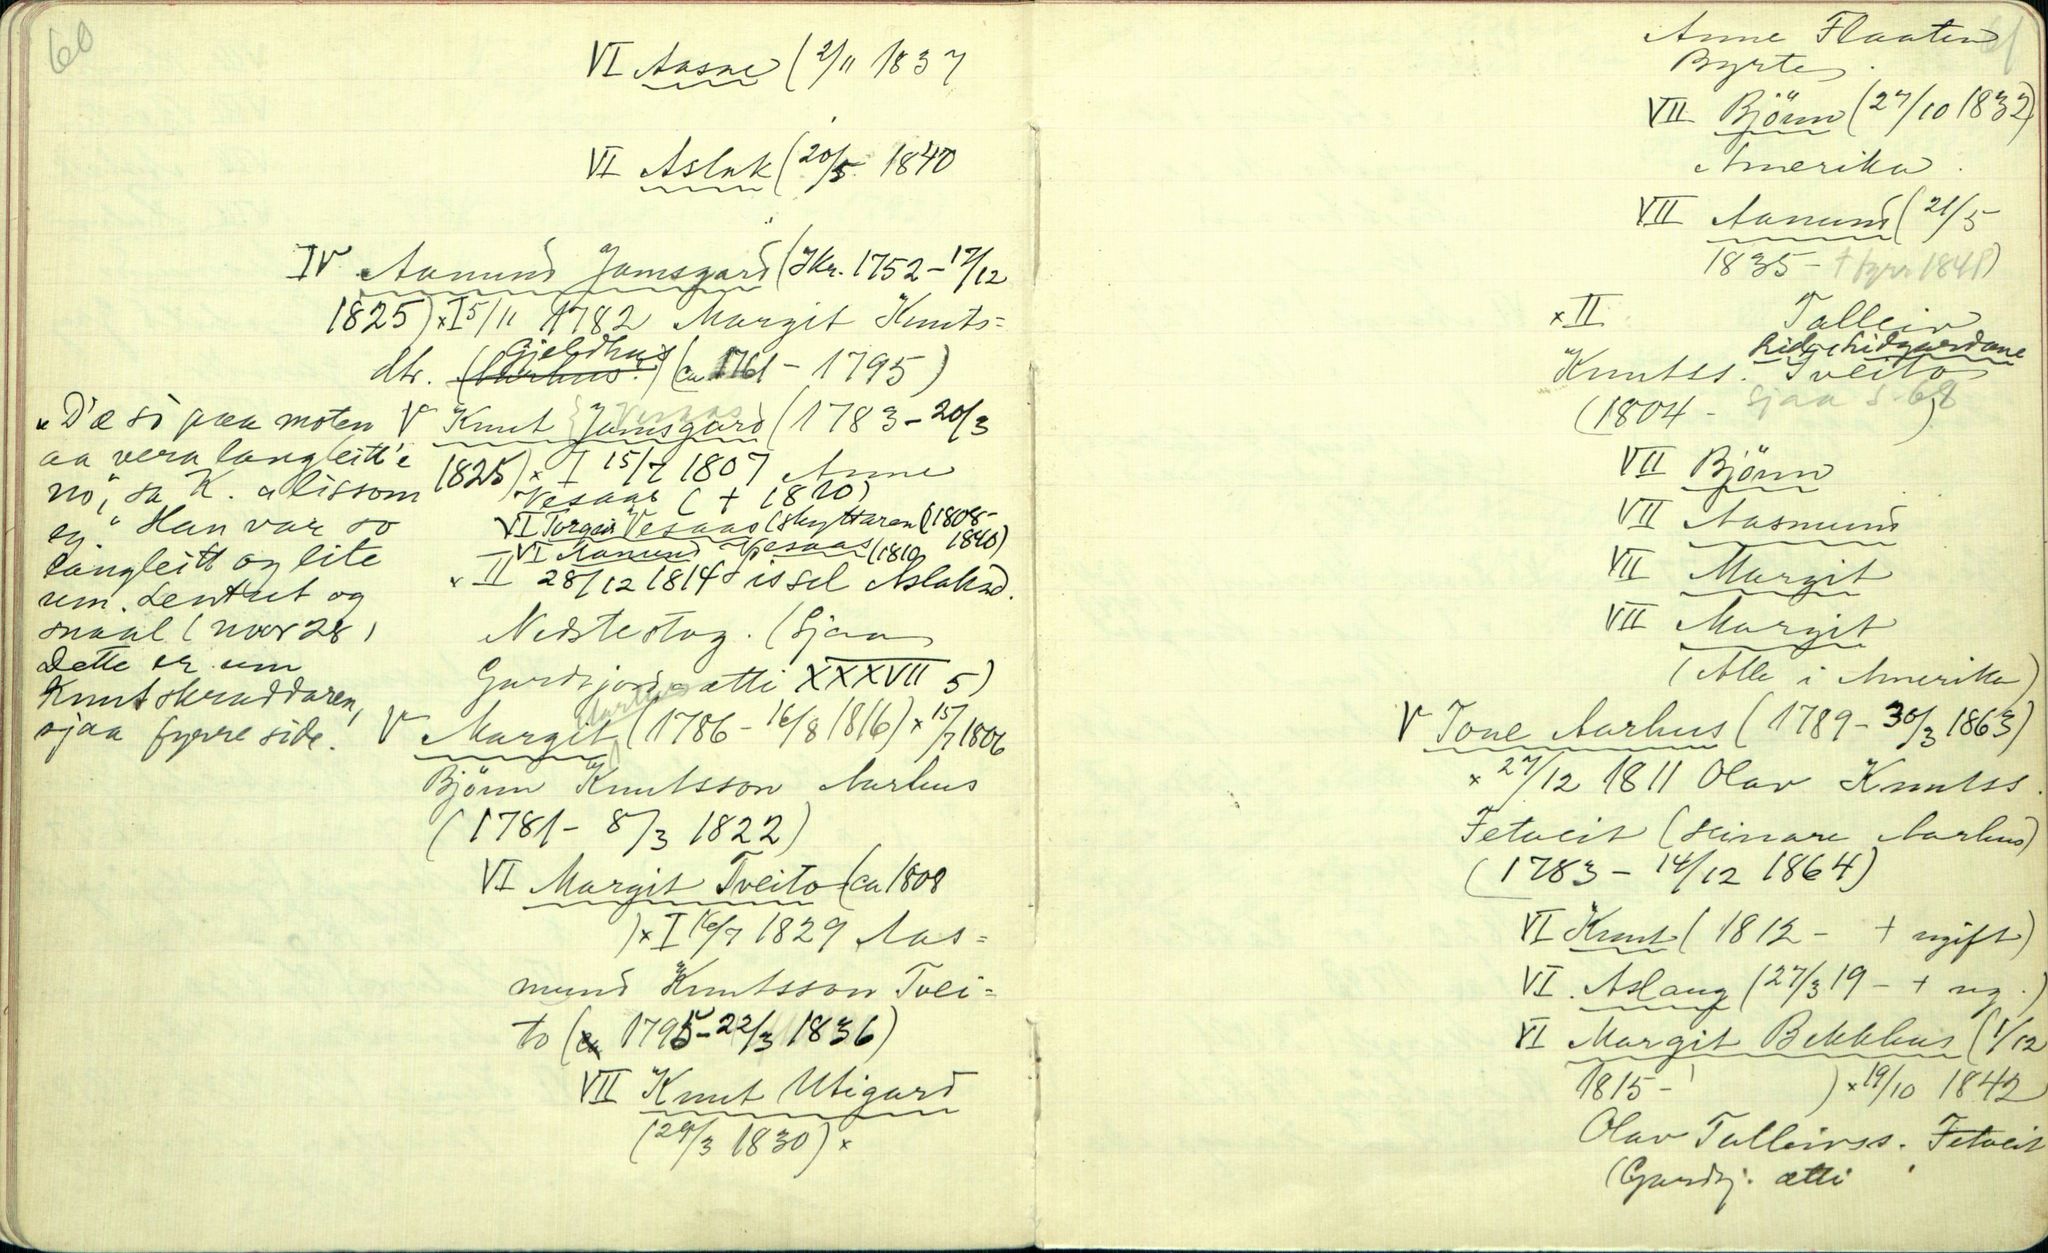 60
VI Aasne (2/11 1837
VI Aslak (20/5 1840
IV Aamund Jamsgard (Skr. 1752 – 17/12
1825) × I 5/11 1782 Margit Knuts=
Gjeldhus
dtr. (Aarhus?) (ca 1761 – 1795)
Vesaas
V Knut (Jamsgard (1783 – 20/3
1825) × I 15/7 1807 Anne
Vesaas († 1810)
VI Torgeir Vesaas (skyttaren (1808–
1840)
VI Aamund Vesaas (1810
× II 28/12 1814 Sissel Aslaksd.
Nedstestog. (Sjaa
Gardsjord-ætti XXXVII 5)
"D'æ so paa moten
aa vera langleitt'e
no", sa K. "lissom
eg." Han var so
langleitt og lite
um. Lentut og
snaal (nvor 28)
Dette er um
Knut skraddaren,
sjaa fyrre side.
Aarhus
V Margit (1786 – 16/8 1816) × 15/7 1806
Björn Knutsson Aarhus
(1781 – 8/3 1822)
VI Margit Tveito (ca 1808
) × I 16/7 1829 Aas=
mund Knutsson Tvei=
to (ca 1795 – 22/3 1836)
VII Knut Utigard
(29/3 1830) ×
61
Anne Flaaten
Byrte.
VII Björn (27/10 1832)
Amerika.
VII Aamund (21/5
1835 – † fyrr 1841)
× II Talleiv
Lid i Lidgardane
Knutss. Tveito
sjaa s. 68
(1804 – )
VII Björn
VII Aasmund
VII Margit
VII Margit
(Alle i Amerika)
V Tone Aarhus (1789 – 30/3 1863)
× 27/12 1811 Olav Knutss.
Fetveit (seinare Aarhus)
(1783 – 14/12 1864)
VI Knut (1812 – † ugift)
VI. Aslaug (27/3 19 – † ug.)
VI Margit Bekkhus (1/12
1815 – ) × 19/10 1842
Olav Talleivss. Fetveit
(Gardsj. ætti